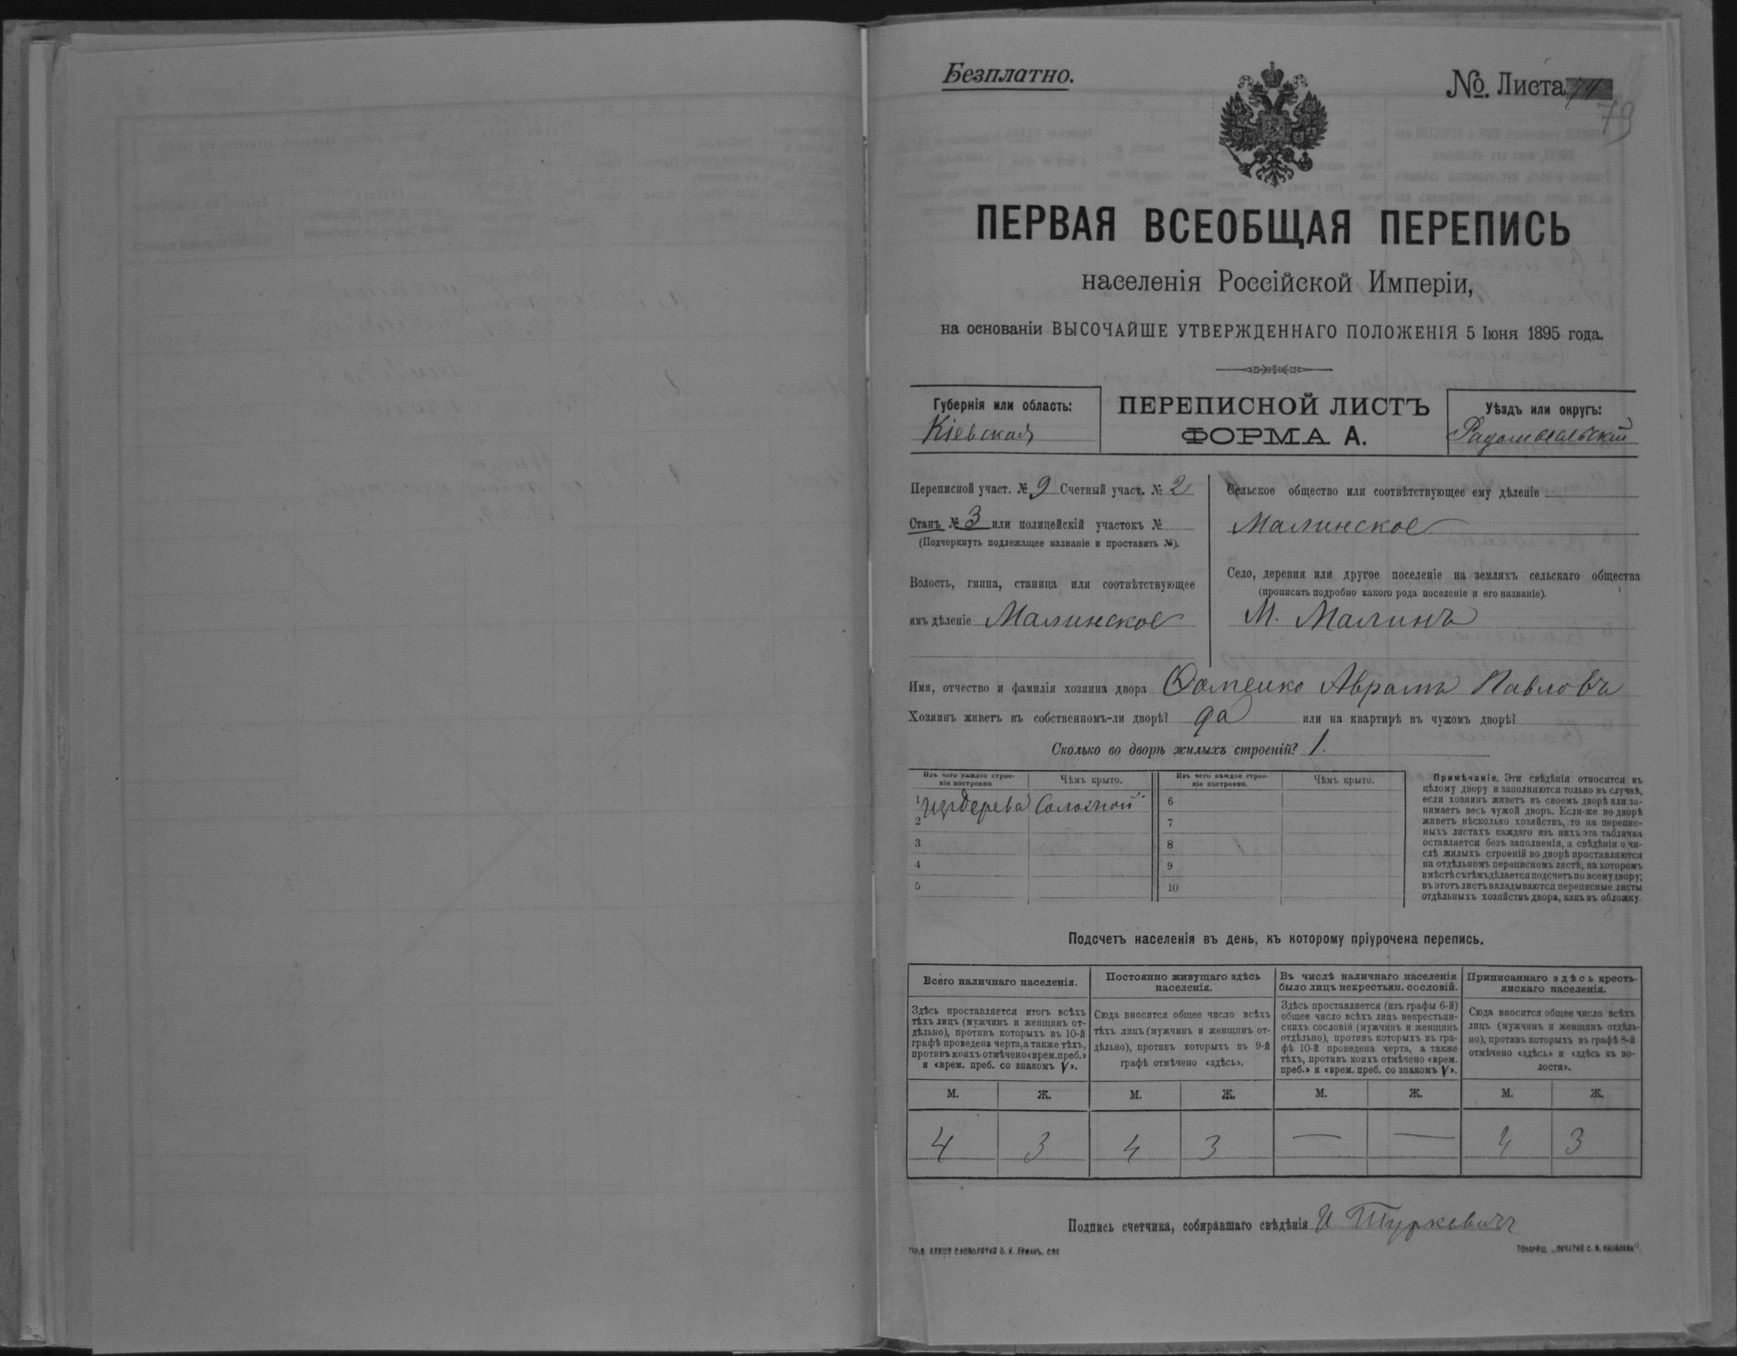 Безплатно.
№. Листа
79
ПЕРВАЯ ВСЕОБЩАЯ ПЕРЕПИСЬ
населенія Россійской Имперіи,
на основаніи ВЫСОЧАЙШЕ УТВЕРЖДЕННАГО ПОЛОЖЕНІЯ 5 Іюня 1895 года.
Губернія или область:
Кіевская
ПЕРЕПИСНОЙ ЛИСТЪ
ФОРМА А.
Уѣздъ или округъ:
Радомысльскій
Переписной участ. № 9 Счетный участ. № 2
Станъ № 3 или полицейскій участокъ №
(Подчеркнуть подлежащее названіе и проставить №).
Волость, гмина, станица или соотвѣтствующее
имъ дѣленіе Малинское
Сельское общество или соотвѣтствующее ему дѣленіе
Малинское
Село, деревня или другое поселеніе на земляхъ сельскаго общества
(прописать подробно какого рода поселеніе и его названіе).
М. Малинъ
Имя, отчество и фамилія хозяина двора Аврамъ Павловъ
Хозяинъ живетъ въ собственномъ-ли дворѣ? да или на квартирѣ въ чужомъ дворѣ?
Сколько во дворѣ жилыхъ строеній? 1.
Изъ чего каждое строе-
ніе построено.
Чѣмъ крыто.
Изъ чего каждое строе-
ніе построено.
Чѣмъ крыто.
1 Изъ дерева Соломой 6
2 7
3 8
4 9
5 10
Примѣчаніе. Эти свѣдѣнія относятся къ
цѣлому двору и заполняются только въ случаѣ,
если хозяинъ живетъ въ своемъ дворѣ или за-
нимаетъ весь чужой дворъ. Если-же во дворѣ
живетъ нѣсколько хозяйствъ, то на перепис-
ныхъ листахъ каждаго изъ нихъ эта табличка
оставляется безъ заполненія, а свѣдѣнія о чи-
слѣ жилыхъ строеній во дворѣ проставляются
на отдѣльномъ переписномъ листѣ, на которомъ
вмѣстѣ съ тѣмъ дѣлается подсчетъ по всему двору;
въ этотъ листъ вкладываются переписные листы
отдѣльныхъ хозяйствъ двора, какъ въ обложку.
Подсчетъ населенія въ день, къ которому пріурочена перепись.
Всего наличнаго населенія.
Здѣсь проставляется итогъ всѣхъ
тѣхъ лицъ (мужчинъ и женщинъ от-
дѣльно), противъ которыхъ въ 10-й
графѣ проведена черта, а также тѣхъ,
противъ коихъ отмѣчено «врем. преб.»
и «врем. преб. со знакомъ V».
Постоянно живущаго здѣсь
населенія.
Сюда вносится общее число всѣхъ
тѣхъ лицъ (мужчинъ и женщинъ от-
дѣльно), противъ которыхъ въ 9-й
графѣ отмѣчено «здѣсь».
Въ числѣ наличнаго населенія
было лицъ некрестьян. сословій.
Здѣсь проставляется (изъ графы 6-й)
общее число всѣхъ лицъ некрестьян-
скихъ сословій (мужчинъ и женщинъ
отдѣльно), противъ которыхъ въ гра-
фѣ 10-й проведена черта, а также
тѣхъ, противъ коихъ отмѣчено «врем.
преб.» и «врем. преб. со знакомъ V».
Приписаннаго здѣсь кресть-
янскаго населенія.
Сюда вносится общее число всѣхъ
лицъ (мужчинъ и женщинъ отдѣль-
но), противъ которыхъ въ графѣ 8-й
отмѣчено «здѣсь» и «здѣсь въ во-
лости».
М. Ж. М. Ж. М. Ж. М. Ж.
4 3 4 3 — — 4 3
Подпись счетчика, собиравшаго свѣдѣнія И Туркевичъ